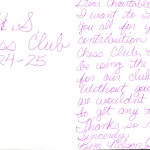 ess Club
24-25
Dear Charitable
I want to
you all for
contribution
Chess Club,
be using the
for our club
Without you
we wouldn't
to get any
Thanks so
Sincerely,